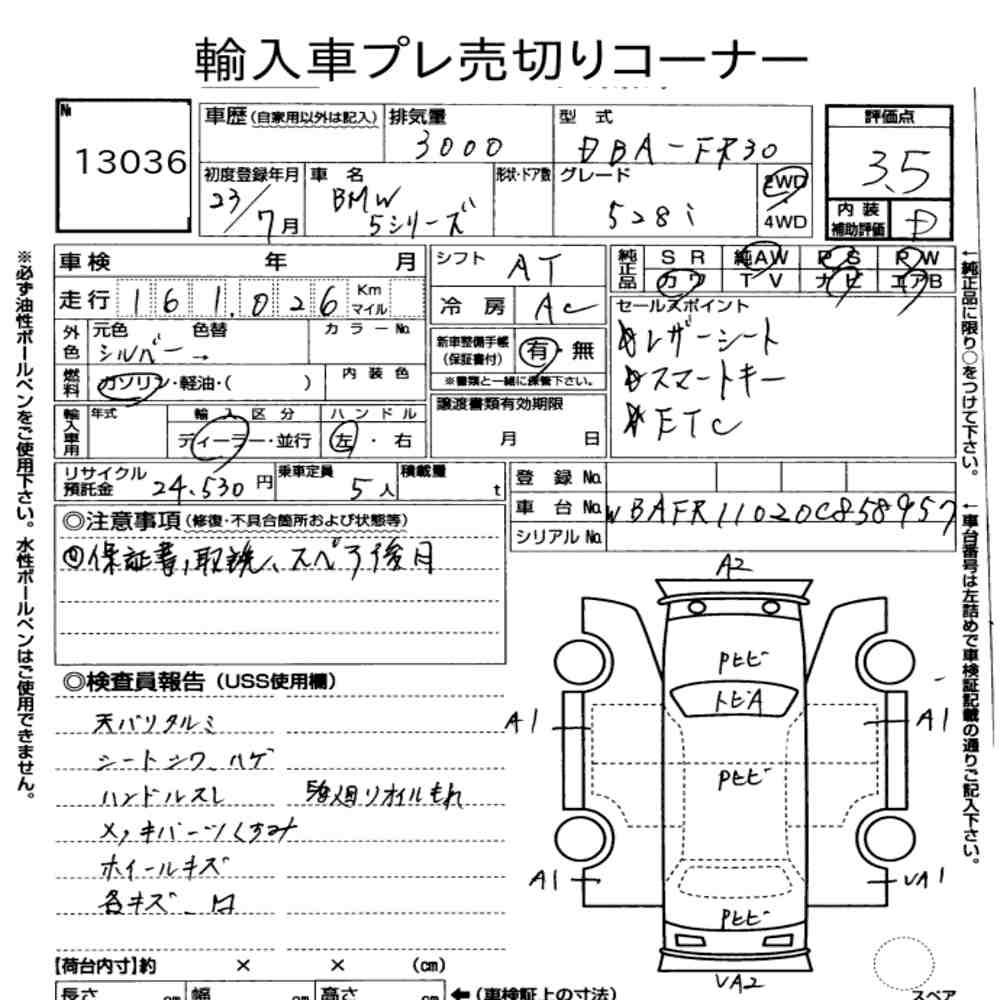 輸入車プレ売切りコーナー
№ 13036
車歴(自家用以外は記入) 排気量 3000 型式 DBA-FR30 評価点 3.5
初度登録年月 23/7月 車名 BMW 5シリーズ 形状・ドア数 グレード 528i 2WD・4WD 内装補助評価 D
車検 年 月 シフト AT 純正品 SR 純AW PS PW
カワ TV ナビ エアB
走行 161.026 Km マイル 冷房 AC
外色 元色 シルバー → 色替 カラーNo.
新車整備手帳(保証書付) 有・無
※書類と一緒に保管下さい。
セールスポイント
☆レザーシート
☆スマートキー
☆ETC
燃料 ガソリン・軽油・( ) 内装色
譲渡書類有効期限 月 日
輸入車用 年式 輸入区分 ディーラー・並行 ハンドル 左・右
リサイクル預託金 24.530円 乗車定員 5人 積載量 t
登録No.
車台No. WBAFR11020C858957
シリアルNo.
◎注意事項(修復・不具合箇所および状態等)
◎保証書、取説、スペア後月
◎検査員報告(USS使用欄)
天バリタルミ
シートシワ、ハゲ
ハンドルスレ
廻りオイルもれ
メッキパーツくすみ
ホイールキズ
各キズ、凹
A2
Pヒビ
トビA
A1 A1
Pヒビ
A1 VA1
Pヒビ
VA2
【荷台内寸】約 × × (cm)
長さ cm 幅 cm 高さ cm ←(車検証上の寸法)
スペア
※必ず油性ボールペンをご使用下さい。水性ボールペンはご使用できません。
←純正品に限り○をつけて下さい。
←車台番号は左詰めで車検証記載の通りご記入下さい。